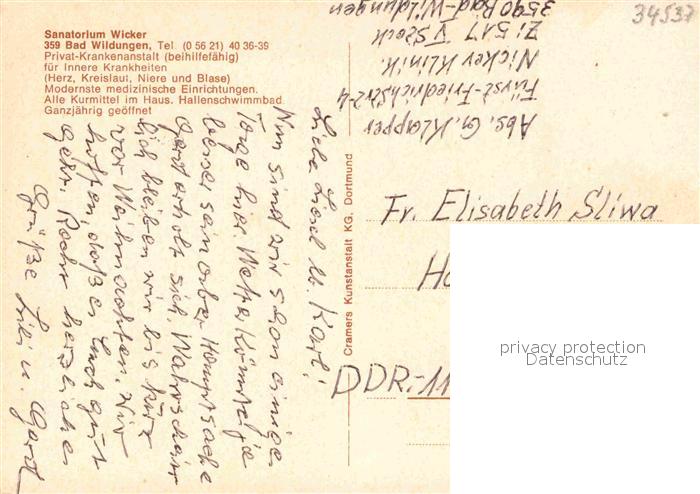 Sanatorium Wicker
359 Bad Wildungen, Tel. (0 56 21) 40 36-39
Privat-Krankenanstalt (beihilfefähig)
für Innere Krankheiten
(Herz, Kreislauf, Niere und Blase)
Modernste medizinische Einrichtungen.
Alle Kurmittel im Haus. Hallenschwimmbad
Ganzjährig geöffnet
Liebe Liesel u. Karl!
Nun sind wir schon einige
Tage hier. Wetter könnte ja
besser sein aber Hauptsache
Gerd erholt sich. Wahrschein
lich bleiben wir bis kurz
vor Weihnachten. Wir
hoffen, daß es Euch gut
geht. Recht herzliche
Grüße Lili u. Gerd
Cramers Kunstanstalt KG. Dortmund
Abs. G. Klapper
Fürst-Friedrichstr 2-4
Wicker Klinik.
Zi. 517 V Stock
3590 Bad-Wildungen
34537
Fr. Elisabeth Sliwa
DDR.-11
privacy protection
Datenschutz